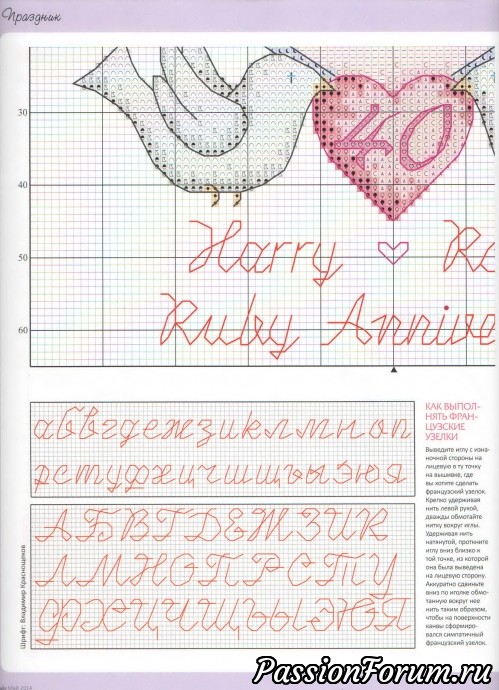 Праздник
40
30
40
50
60
Harry Ra
Ruby Annive
абвгдежзиклмноп
рстуфхцчшщъыэюя
АБВГДЕЖЗИК
ЛМНОПРСТУ
ФХЦЧШЩЪЫЭЮЯ
Шрифт: Владимир Краснощеков
КАК ВЫПОЛ-
НЯТЬ ФРАН-
ЦУЗСКИЕ
УЗЕЛКИ
Выведите иглу с изна-
ночной стороны на
лицевую в ту точку
на вышивке, где
вы хотите сделать
французский узелок.
Крепко удерживая
нить левой рукой,
дважды обмотайте
нитку вокруг иглы.
Удерживая нить
натянутой, проткните
иглу вниз близко к
той точке, из которой
она была выведена
на лицевую сторону.
Аккуратно сдвиньте
вниз по иголке обмо-
танную вокруг нее
нить таким образом,
чтобы на поверхности
канвы сформиро-
вался симпатичный
французский узелок.
май 2014
PassionForum.ru